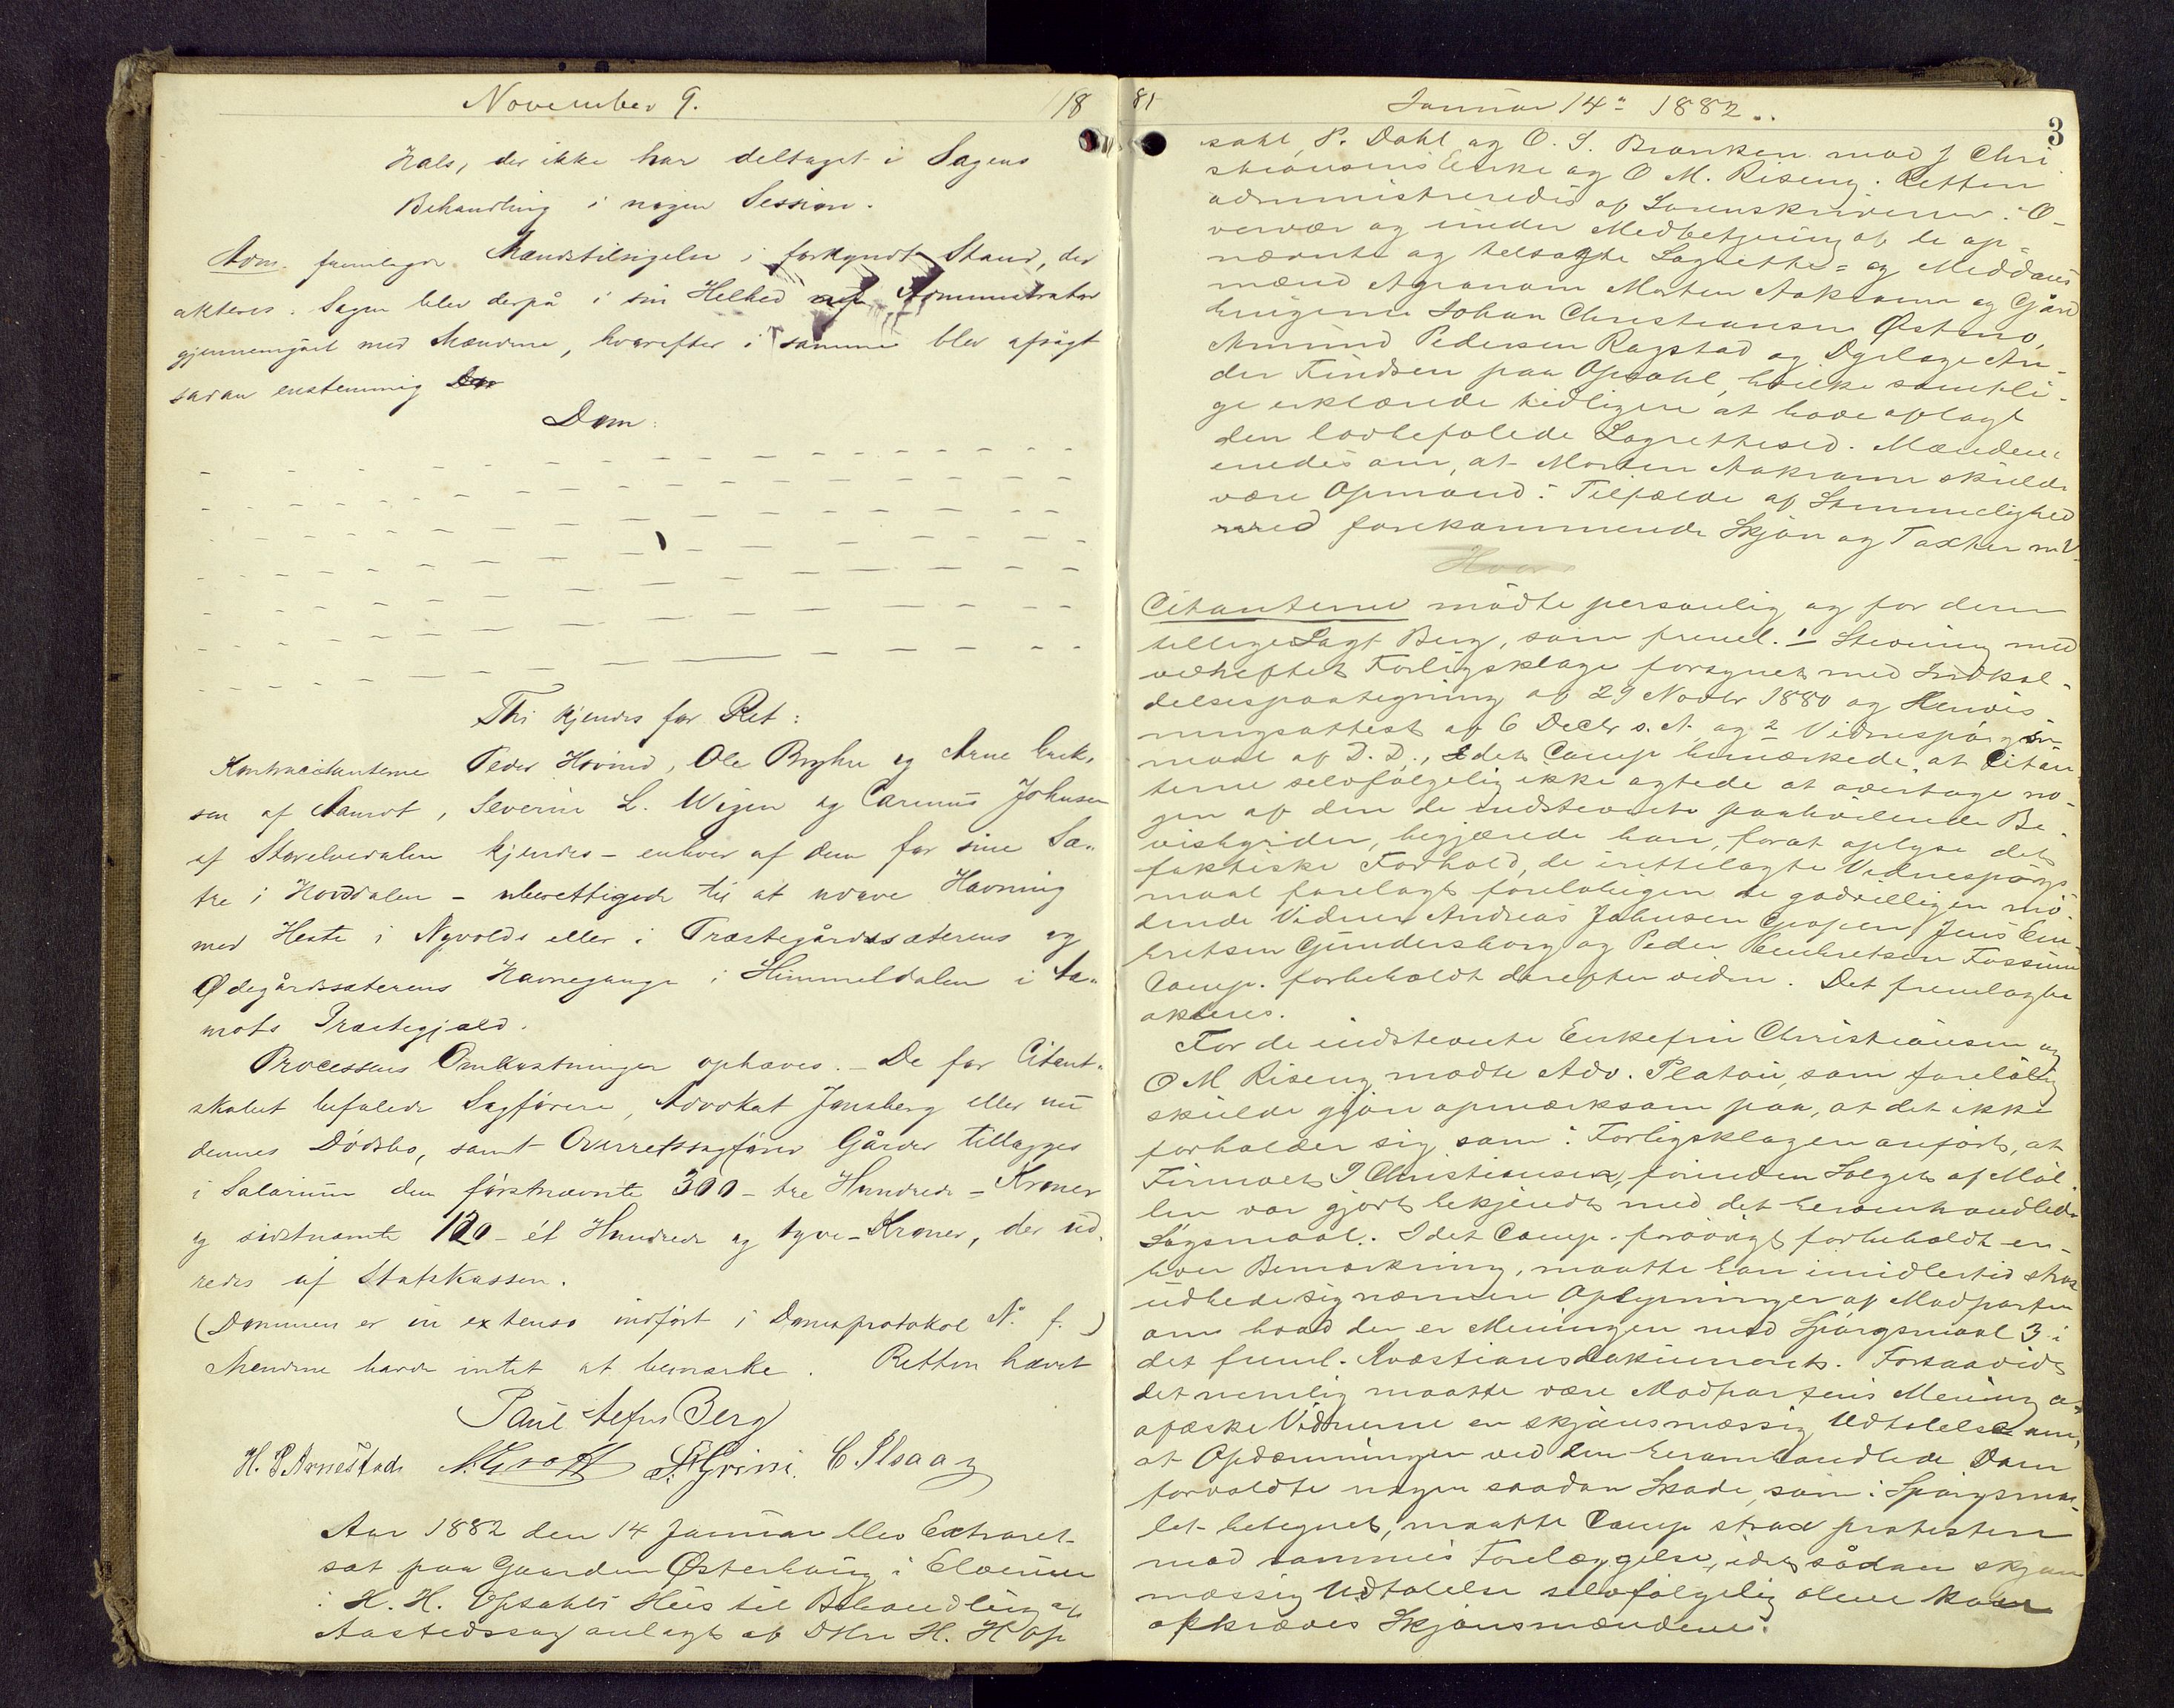 November 9.
18
Hals, der ikke har deltaget i Sagens
Behandling i nogen Session.
Adm. fremlagde Mandstilsigelse i forkyndt Stand, der
akteres. Sagen blev derpå i sin Helhed af Administrator
gjennemgået med Mændene, hvorefter i samme blev afsagt
sådan enstemmig
Dom:
Thi kjendes for Ret:
Kontracitanterne Peder Hovind, Ole Bryhn og Arne Erik-
sen af Aamot, Severin L. Wigen og Carinus Johnsen
af Storelvedalen kjendes - enhver af dem for sine Sæ-
tre i Hovdalen - uberettigede til at udøve Havning
med Heste i Nyvolds eller i Præstegårdssæterens og
Ødegårdssæterens Havnegange i Himmeldalen i Aa-
mots Præstegjæld.
Processens Omkostninger ophæves. - De for Citant-
skabet befalede Sagførere, Advokat Jensberg eller nu
dennes Dödsbo, samt Overretssagfører Gårder tillægges
i Salarium den förstnævnte 300 - tre Hundrede - Kroner
og sidstnævnte 120 - ét Hundrede og tyve - Kroner, der ud-
redes af Statskassen.
(Dommen er in extenso indført i Domsprotokol No. f. )
Mændene havde intet at bemærke. Retten hævet
Paul Berg
H. P. Arnestad N. Groth Grini. C. Ilsaas
Aar 1882 den 14 Januar blev Extraret-
sat paa Gaarden Østerhaug i Elverum
i H. H. Opsahls Hus til Behandling af
Aastedssag anlagt af DHrr H. H. Op
81
Januar 14de 1882.
3
sahl, P. Dahl og O. S. Branken mod J Chri
stiansens Enke og O M. Riseng. Retten
administreredes af Sorenskriveren i O-
vervær og under Medbetjening af de op-
nævnte og tilsagte Lagrettes= og Meddoms
mænd Agronom Morten Aakrann og Gård
brugerne Johan Christiansen Østmo,
Amund Pedersen Ragstad og Dyrlæge An-
der Findsen paa Opsahl, hvilke samtli-
ge erklærede tidligere at have aflagt
den lovbefalede Lagrettesed. Mændene
enedes om, at Morten Aakrann skulde
være Opmand i Tilfælde af Stemmelighed
ved forekommende Skjøn og Taxter m V.
Citanterne mødte personlig og for dem
tillige Sagf Berg, som freml. 1 Stevning med
vedheftet Forligsklage forsynet med Indkal-
delsespaategning af 29 Novbr 1880 og Henvis
ningsattest af 6 Decbr s. A. og 2 Vidnespørgs-
maal af D. D., Idet Comp bemærkede at Citan-
terne selvfølgelig ikke agtede at overtage no-
gen af den de indstevnte paahvilende Be-
visbyrder, begjærede han, forat oplyse det
faktiske Forhold, de irettelagte Vidnespørgs
maal forelagt foreløbigen de godvilligen mö-
dende Vidner Andreas Johnsen Grafsen, Jens Em-
bretsen Gundersborg og Peder Embretsen Fossum
Comp. forbeholdt derefter viden. Det fremlagte
akteres.
For de indstevnte Enkefru Christiansen og
O M Riseng mødte Adv. Platou, som foreløbig
skulde gjøre opmærksom paa, at det ikke
forholder sig som i Forligsklagen anført, at
Firmaet J Christiansen, forinden Salget af Möl
len var gjort bekjendt med det heromhandlede
Søgsmaal. Idet Comp. forøvrigt forbeholdt en-
hver Bemærkning, maatte han imidlertid strax
udbede sig nærmere Oplysninger af Modparten
om hvad der er Meningen med Spörgsmaal 3 i
det freml. Kvæstionsdokument. Forsaavidt
det nemlig maatte være Modpartens Mening at
afæske Vidnerne en skjønsmæssig Udtalelse om,
at Opdæmningen ved den heromhandlede Dam
forvoldte nogen saadan Skade, som i Spörgsmaa-
let betegnet, maatte Comp strax protestere
mod sammes Forelæggelse, idet sådan skjøn
mæssig Udtalelse selvfølgelig alene kan
afkræves Skjønsmændene.